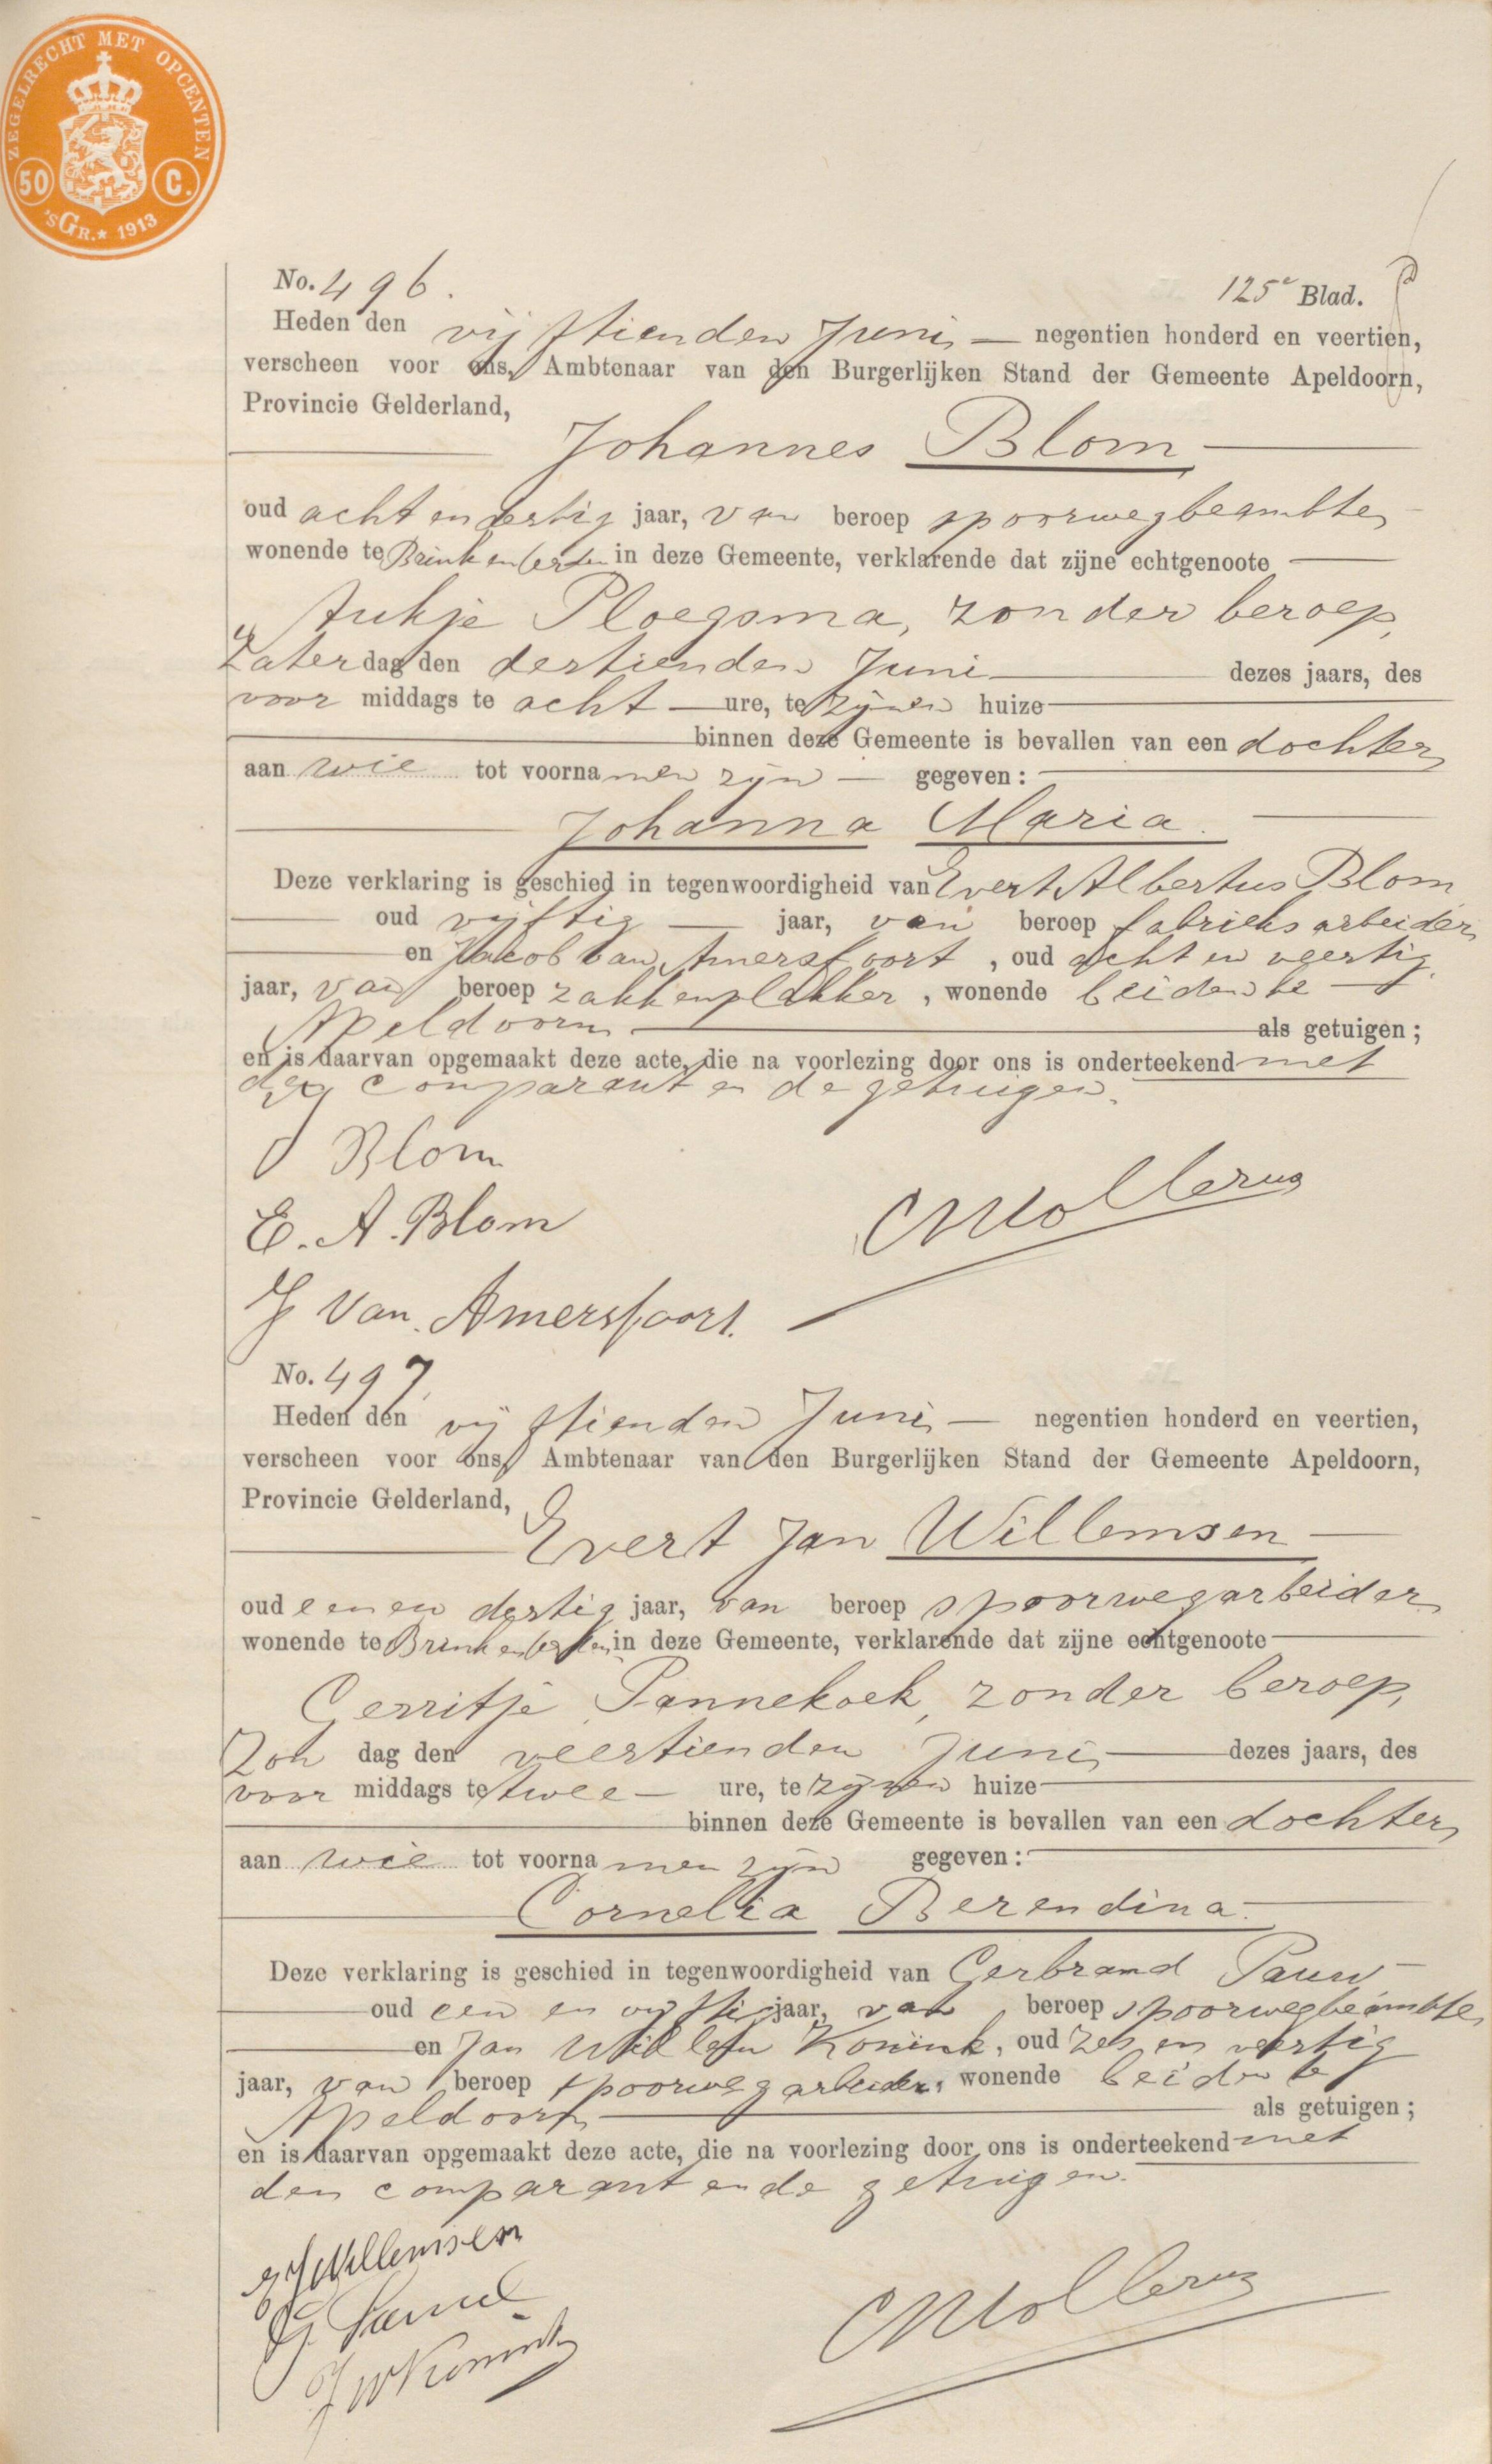 ZEGELRECHT MET OPCENTEN
50 C.
'sGR.* 1913
No. 496.
125e Blad.
Heden den vijftienden Juni negentien honderd en veertien,
verscheen voor ons, Ambtenaar van den Burgerlijken Stand der Gemeente Apeldoorn,
Provincie Gelderland,
Johannes Blom
oud acht en dertig jaar, van beroep spoorwegbeambte,
wonende te Brink en Orden in deze Gemeente, verklarende dat zijne echtgenoote
Aukje Ploegsma, zonder beroep,
Zaterdag den dertienden Juni dezes jaars, des
voor middags te acht ure, te zijnen huize
binnen deze Gemeente is bevallen van een dochter,
aan wie tot voornamen zijn gegeven:
Johanna Maria.
Deze verklaring is geschied in tegenwoordigheid van Evert Albertus Blom
oud vijftig jaar, van beroep fabrieksarbeider,
en Jacob van Amersfoort, oud acht en veertig
jaar, van beroep zakkenplakker, wonende beiden te
Apeldoorn als getuigen;
en is daarvan opgemaakt deze acte, die na voorlezing door ons is onderteekend met
den comparant en de getuigen.
J Blom
E. A. Blom
J van Amersfoort.
CMollerus
No. 497.
Heden den vijftienden Juni, negentien honderd en veertien,
verscheen voor ons, Ambtenaar van den Burgerlijken Stand der Gemeente Apeldoorn,
Provincie Gelderland,
Evert Jan Willemsen
oud een en dertig jaar, van beroep spoorwegarbeider
wonende te Brink en Orden in deze Gemeente, verklarende dat zijne echtgenoote
Gerritje Pannekoek, zonder beroep,
Zon dag den veertienden Juni, dezes jaars, des
voor middags te twee ure, te zijnen huize
binnen deze Gemeente is bevallen van een dochter,
aan wie tot voornamen zijn gegeven:
Cornelia Berendina.
Deze verklaring is geschied in tegenwoordigheid van Gerbrand Pauw
oud een en vijftig jaar, van beroep spoorwegbeambte,
en Jan Willem Konink, oud zes en veertig
jaar, van beroep spoorwegarbeider, wonende beiden te
Apeldoorn als getuigen;
en is daarvan opgemaakt deze acte, die na voorlezing door ons is onderteekend met
den comparant en de getuigen.
E J Willemsen
G. Pauw
J W Konink
CMollerus